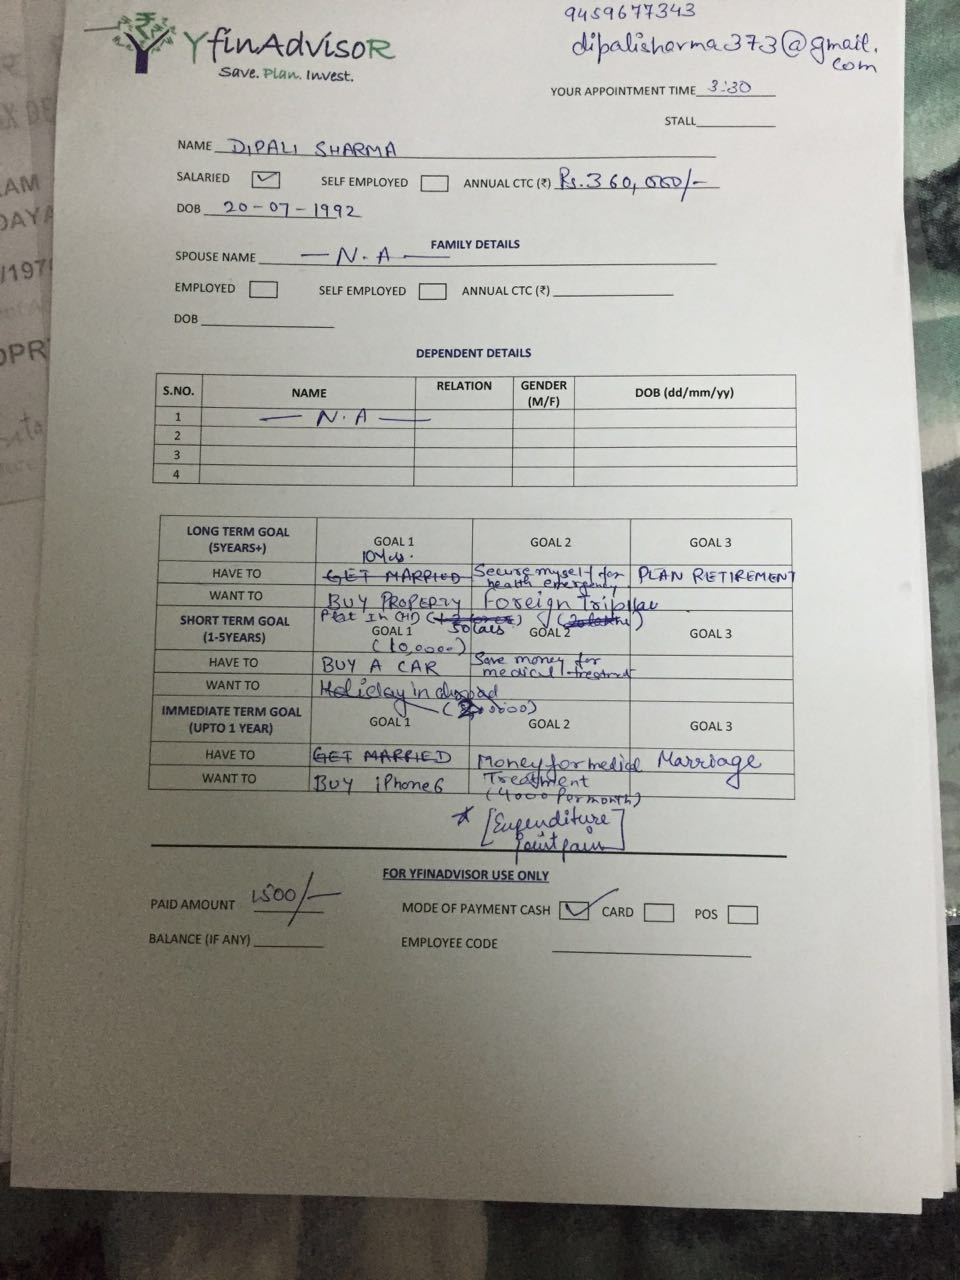 9459677343
dipalisharma373@gmail.
com
YfinAdvisoR
Save. Plan. Invest.
YOUR APPOINTMENT TIME 3:30
STALL
NAME DIPALI SHARMA
SALARIED SELF EMPLOYED ANNUAL CTC (₹) Rs. 360,000/-
DOB 20-07-1992
FAMILY DETAILS
SPOUSE NAME — N.A —
EMPLOYED SELF EMPLOYED ANNUAL CTC (₹)
DOB
DEPENDENT DETAILS
S.NO. NAME RELATION GENDER (M/F) DOB (dd/mm/yy)
1 — N.A —
2
3
4
LONG TERM GOAL (5YEARS+) GOAL 1 GOAL 2 GOAL 3
HAVE TO GET MARRIED Secure myself for health emergency PLAN RETIREMENT
WANT TO BUY PROPERTY Foreign Trip
Flat In
50 lacs
SHORT TERM GOAL (1-5YEARS) GOAL 1 GOAL 2 GOAL 3
(10,0000)
HAVE TO BUY A CAR Save money for medical treatment
WANT TO Holiday in abroad
IMMEDIATE TERM GOAL (UPTO 1 YEAR) GOAL 1 GOAL 2 GOAL 3
HAVE TO GET MARRIED Money for medical Marriage
WANT TO BUY iPhone6 Treatment
(4000 Per month)
[Expenditure
FOR YFINADVISOR USE ONLY
PAID AMOUNT 1500/-
MODE OF PAYMENT CASH CARD POS
BALANCE (IF ANY) EMPLOYEE CODE